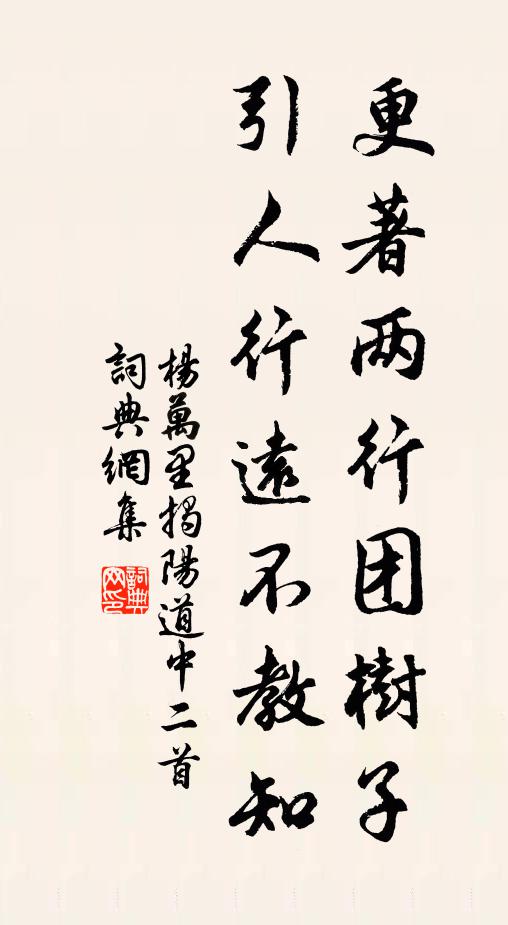 更著两行团樹子
引人行遠不教知
楊萬里揭陽道中二首
詞典網集
詞典网印